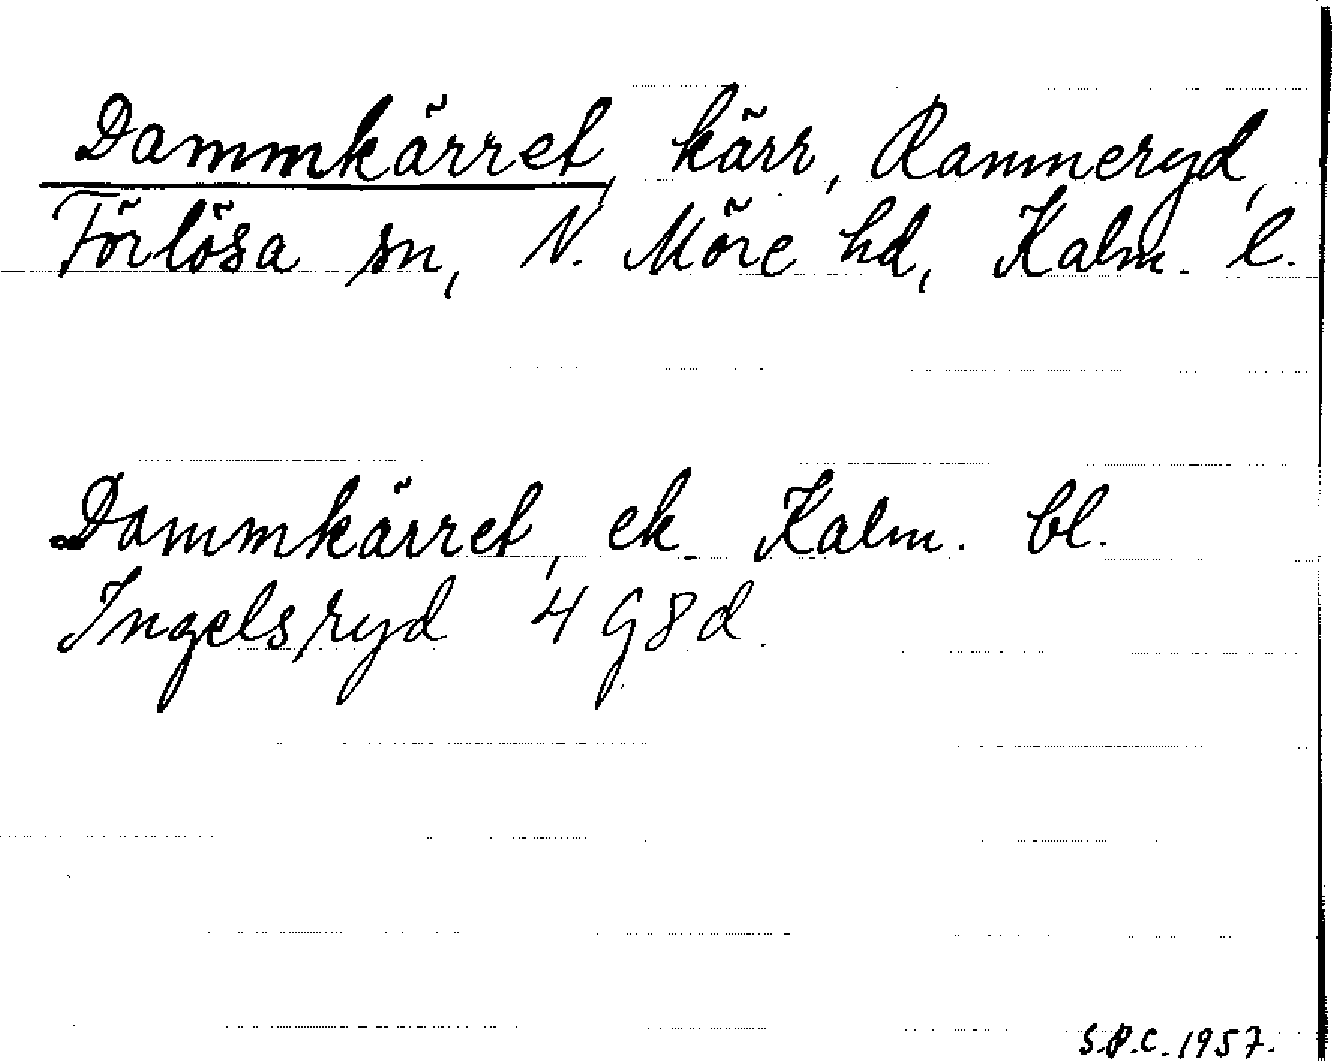 Dammkärret, kärr, Rammeryd,
Förlösa sn, N. Möre hd, Kalm. l.
Dammkärret, ek Kalm. bl.
Ingelsryd 4 G 8 d.
S.P.C. 1957.